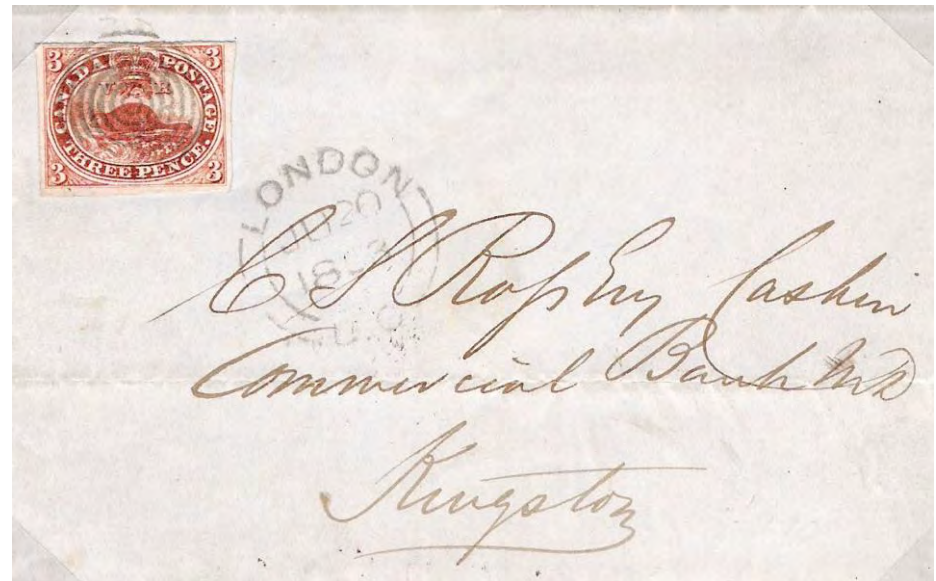 3 3
CANADA POSTAGE.
THREE PENCE.
3 3
LONDON
20
U.C
C S Ross Esq Cashier
Commercial Bank MD
Kingston